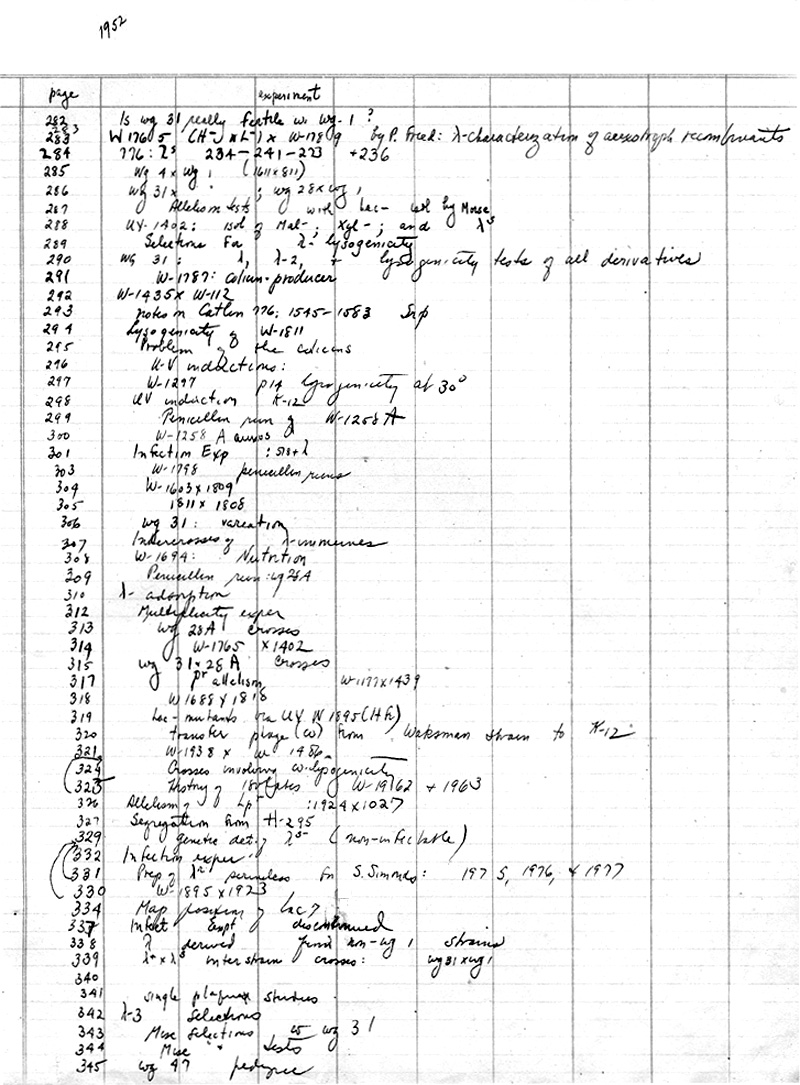 1952
page experiment
282 Is wg 31 really fertile w. wg-1 ?
283 W1765 (H-) x L-) x W-1789 by P. Fried: λ-characterization of auxotroph recombinants
284 776: 234-241-273 +236
285 wg 4 x wg 1 (1611x811)
286 wg 31 x " ; wg 28 x wg 1
287 Allelism tests with Lac- coll by Morse
288 UV-1402: isol of Mal-; Xyl-; and λs
289 Selections for λ- lysogenicity
290 wg 31: λ, λ-2, + lysogenicity tests of all derivatives
291 W-1787: colicin-producer
292 W-1435 x W-112
293 notes on Catlin 776; 1545-1583
294 Lysogenicity of W-1811
295 Problem of the colicins
296 U-V inductions:
297 W-1297 p14 lysogenicity at 30°
298 UV induction K-12
299 Penicillin run of W-1258A
300 W-1258 A auxos
301 Infection Exp : 518+λ
303 W-1798 penicillin runs
304 W-1603 x 1809
305 1811 x 1808
306 wg 31: variation
307 Intercrosses of λ-immunes
308 W-1694: Nutrition
309 Penicillin run: wg 28A
310 λ- adsorption
312 Multiplicity exper
313 wg 28A crosses
314 W-1765 x 1402
315 wg 31 x 28A crosses
317 pr allelism W-1177 x 1439
318 W1688 x 1818
319 Lac- mutants via UV W1895 (Hfr)
320 transfer phage (ω) from Waksman strain to K-12
321 W-1938 x W 1486
324 Crosses involving ω-lysogenicity
323 History of isolates W-1962 + 1963
326 Allelism of Lp : 1924 x 1027
327 Segregation from H-295
329 genetic det. of λs (non-infectable)
332 Infection exper.
331 Prep of for S. Simonds: 1975, 1976, & 1977
330 W-1895 x 1923
334 Map position of Lac7
337 Infect Expt discontinued
338 λ derived from non-wg 1 strains
339 λ+ x λs interstrain crosses: wg 31 x wg 1
340
341 single plaque studies
342 λ-3 selections
343 Misc selections wg 31
344 Misc " tests
345 wg 47 pedigree